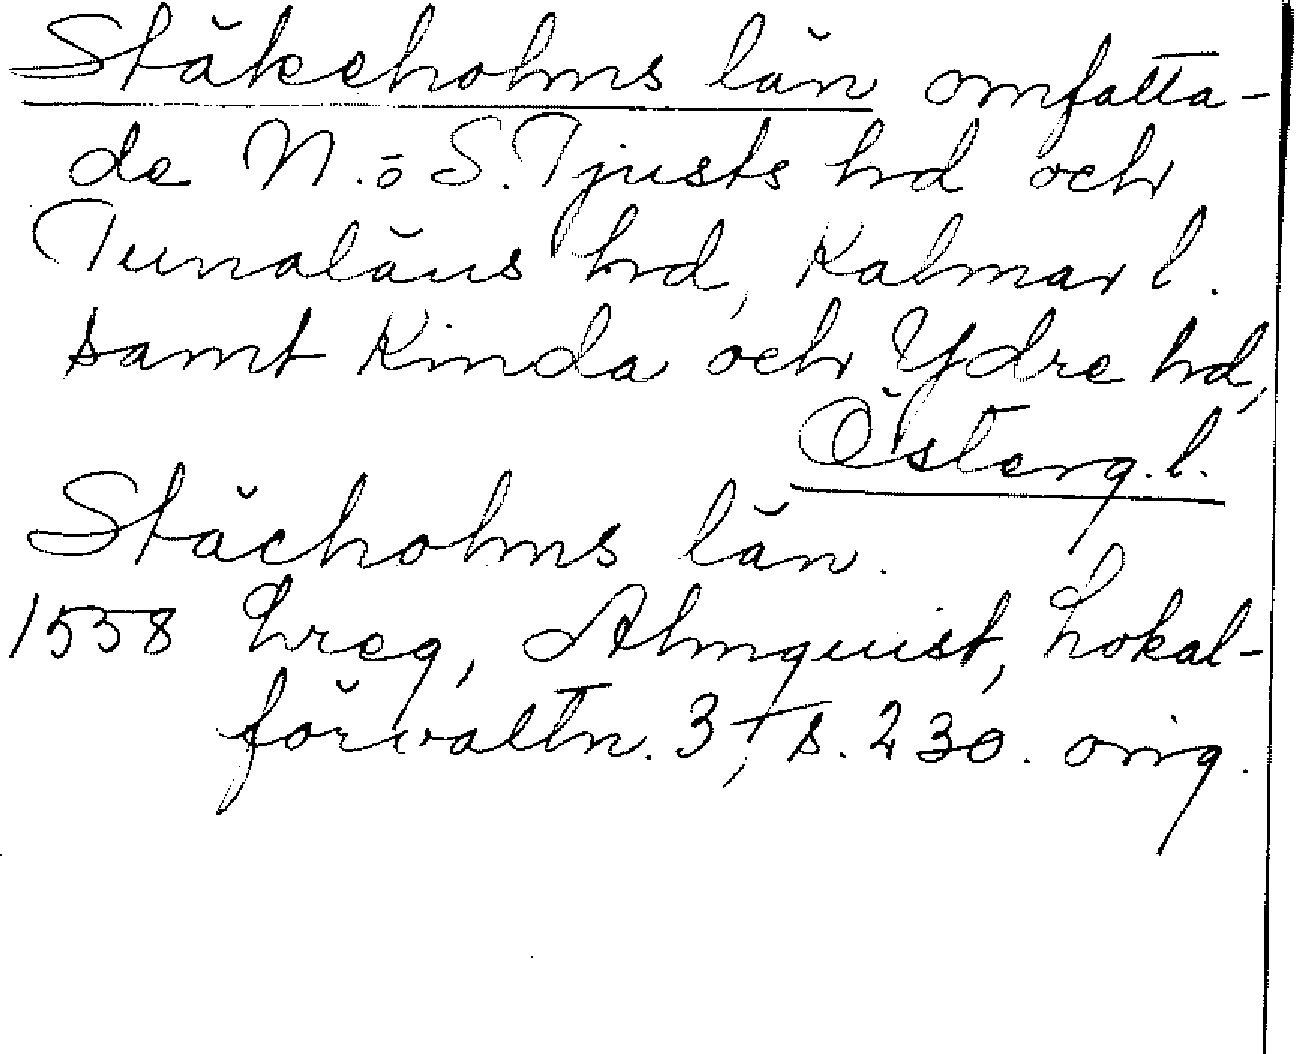 Stäkeholms län omfatta-
de N. o S. Tjusts hd och
Tunaläns hd, Kalmar l.
samt Kinda och Ydre hd,
Österg. l.
Stächolms län.
1558 Lreg, Almquist, Lokal-
förvaltn. 3, s. 230. orig.